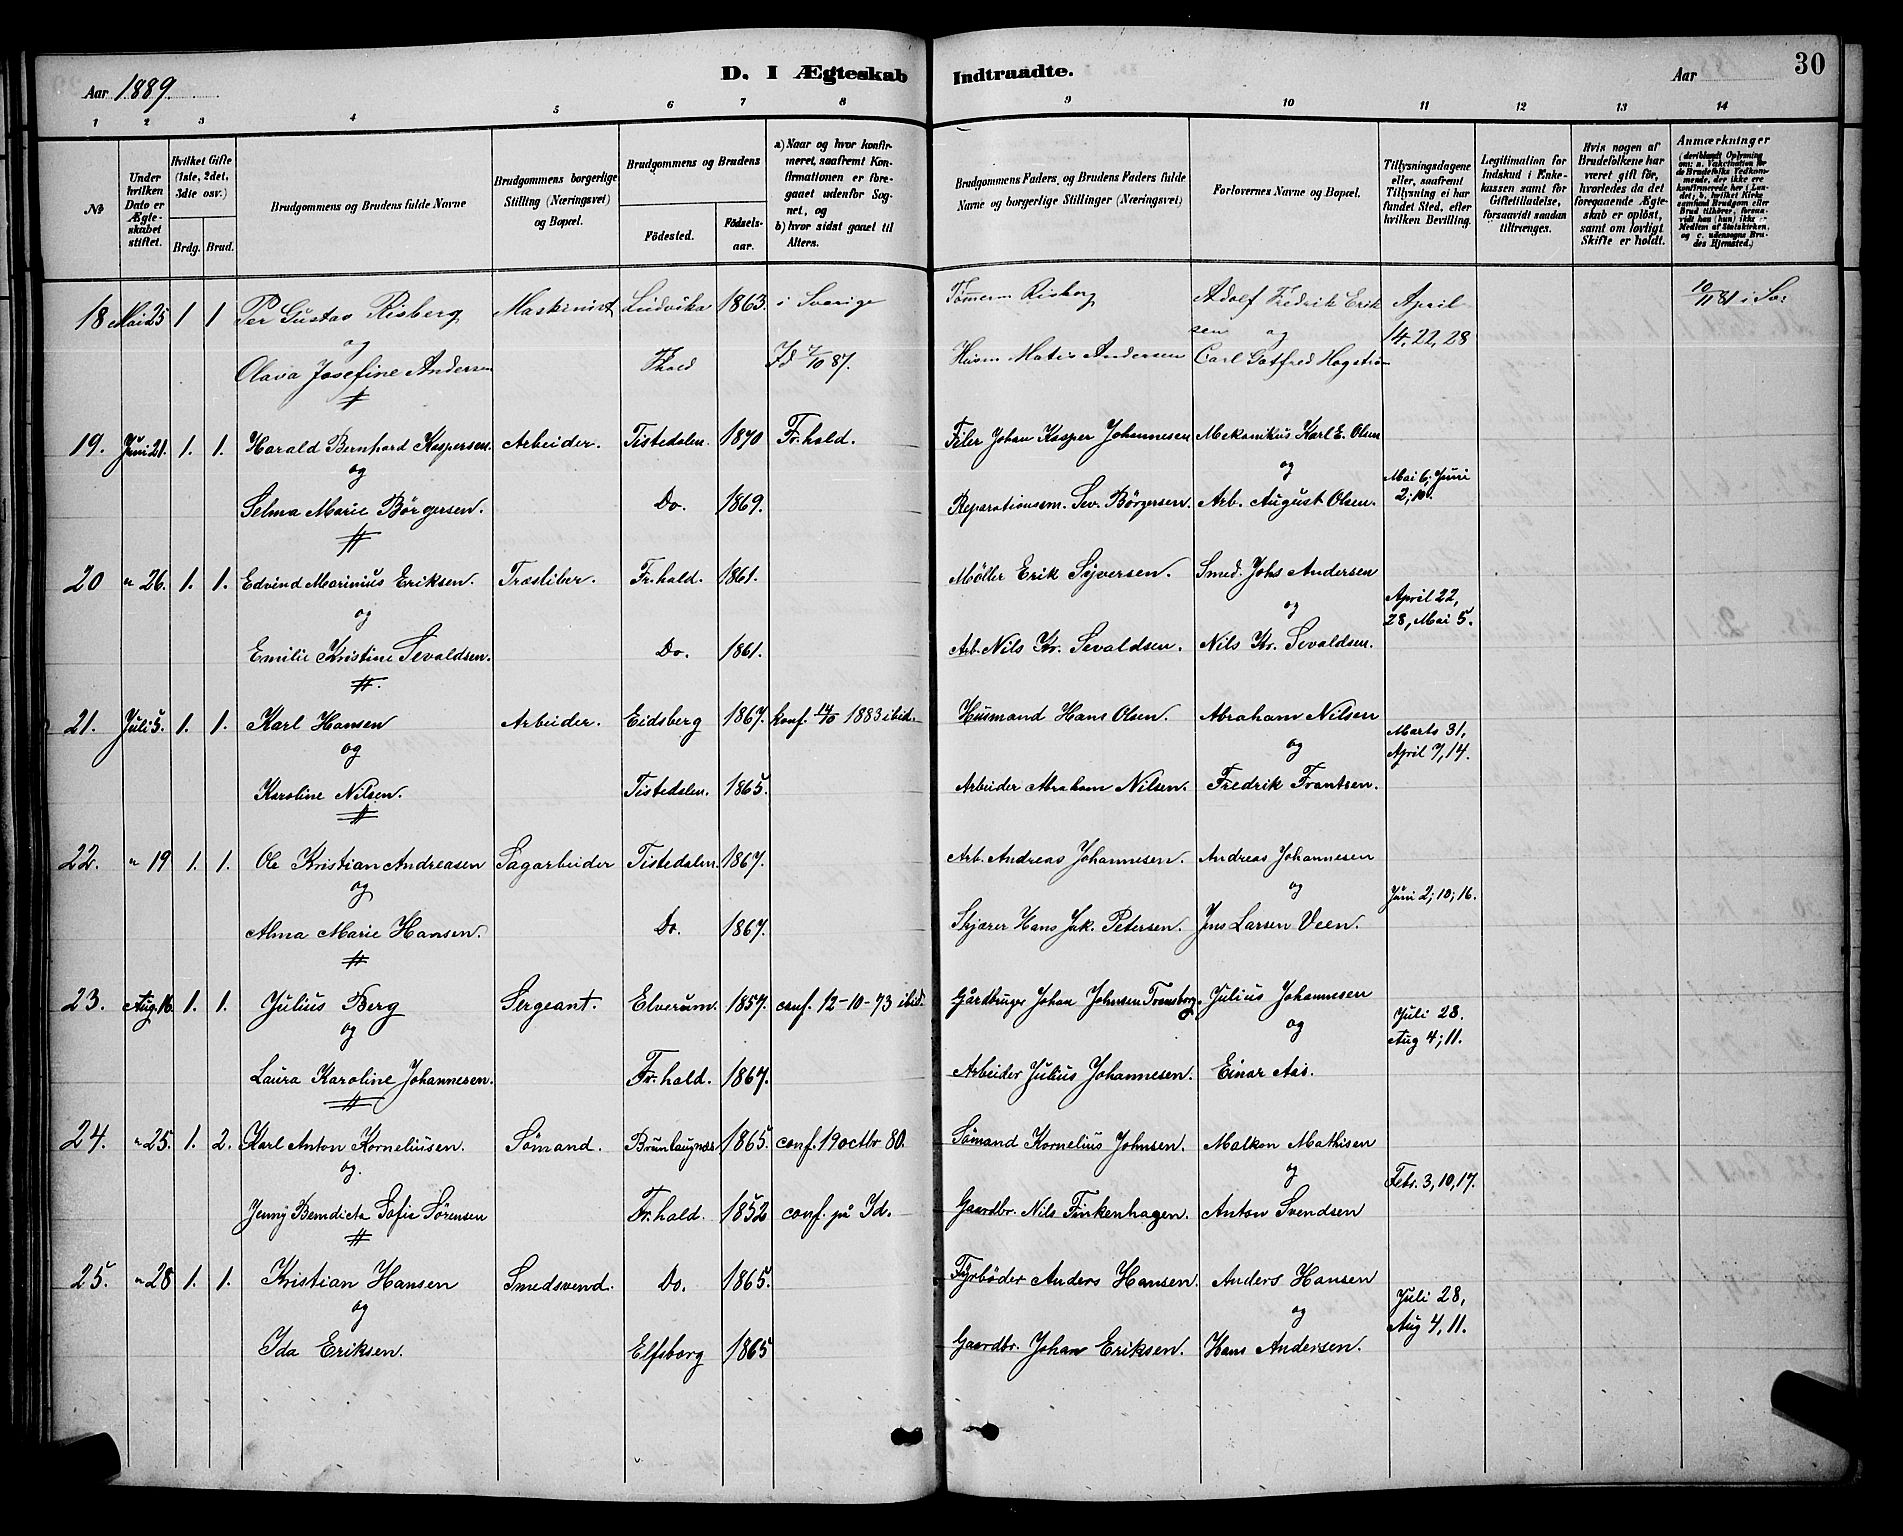 Aar 1889 D. I Ægteskab Indtraadte. Aar 30
1 2 3 4 5 6 7 8 9 10 11 12 13 14
№
Under hvilken Dato er Ægteskabet stiftet.
Hvilket Gifte (1ste, 2det, 3die osv.)
Brdg. Brud.
Brudgommens og Brudens fulde Navne
Brudgommens borgerlige Stilling (Næringsvei) og Bopæl.
Brudgommens og Brudens
Födested. Födselsaar.
a) Naar og hvor konfirmeret, saafremt Konfirmationen er foregaaet udenfor Sognet, og
b) hvor sidst gaaet til Alters.
Brudgommens Faders, og Brudens Faders fulde Navne og borgerlige Stillinger (Næringsvei)
Forlovernes Navne og Bopæl.
Tillysningsdagene eller, saafremt Tillysning ei har fundet Sted, efter hvilken Bevilling.
Legitimation for Indskud i Enkekassen samt for Giftetilladelse, forsaavidt saadan tiltrænges.
Hvis nogen af Brudefolkene har været gift för, hvorledes da det foregaaende Ægteskab er oplöst, samt om lovligt Skifte er holdt.
Anmærkninger
(deriblandt Oplysning om: a. Vakcination for de Brudefolks Vedkommende, der ikke ere konfirmerede her i Landet; b. hvilket Kirkesamfund Brudgom eller Brud tilhörer, forsaavidt han (hun) ikke er Medlem af Statskirken, og c. udensogns Brudes Hjemsted.)
18 Mai 25 1 1 Per Gustav Risberg Maskinist Ludvika 1863. i Sverige Tømerm Risberg Adolf Fredrik Erik April 10/11 81 i Sv:
og sen og 14, 22, 28
Olava Josefine Andersen Fhald Id 2/10 87. Husm. Matis Andersen Carl Gotfred Hogstrøm
19. Juni 21. 1. 1. Harald Bernhard Kaspersen. Arbeider. Tistedalen. 1870 Fr.hald. Filer Johan Kasper Johannesen Mekanikus Karl E. Olsen
og og Mai 6; Juni 2; 10.
Selma Marie Børgersen. Do. 1869. Reparationsm. Sev. Børgersen. Arb. August Olsen.
20 " 26. 1. 1. Edvind Marinius Eriksen. Træsliber. Fr.hald. 1861. Møller Erik Syversen. Smed. Johs Andersen
og og April 22, 28, Mai 5.
Emilie Kristine Sevaldsen. Do. 1861. Arb. Nils Kr. Sevaldsen. Nils Kr. Sevaldsen.
21. Juli 5. 1. 1. Karl Hansen Arbeider. Eidsberg 1867. konf. 14/10 1883 ibid. Husmand Hans Olsen. Abraham Nilsen
og og Marts 31, April 7, 14.
Karoline Nilsen. Tistedalen. 1865. Arbeider Abraham Nilsen. Fredrik Frantsen.
22. " 19 1. 1. Ole Kristian Andreasen Sagarbeider Tistedalen. 1867. Arb. Andreas Johannesen. Andreas Johannesen
og og Juni 2; 10; 16.
Alma Marie Hansen. Do. 1867. Skjærer Hans Jak. Petersen. Jens Larsen Veen.
23. Aug. 16. 1. 1. Julius Berg Sergeant. Elverum. 1857. conf. 12-10-73 ibid. Gårdbruger Johan Johnsen Transberg. Julius Johannesen
og og Juli 28. Aug 4; 11.
Laura Karoline Johannesen. Fr.hald. 1867. Arbeider Julius Johannesen. Einar Aas.
24. " 25. 1. 2. Karl Anton Korneliusen. Sømand. Brunlaugnæs 1865. conf. 19 octbr 80. Sømand Kornelius Johnsen. Malkon Mathisen
og. og Febr. 3, 10, 17.
Jenny Bendicta Sofie Sørensen Fr.hald. 1852 conf. på Id. Gaardbr. Nils Finkenhagen. Anton Svendsen
25. " 28 1. 1. Kristian Hansen Smedsvend. Do. 1865. Fyrbøder Anders Hansen. Anders Hansen
og og Juli 28, Aug 4, 11.
Ida Eriksen. Elfsborg 1865 Gaardbr. Johan Eriksen. Hans Andersen.